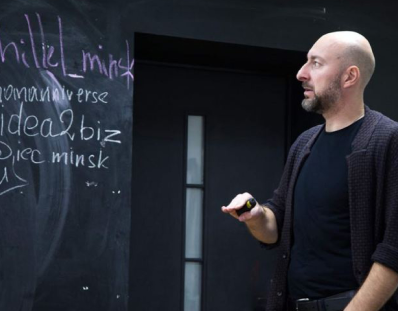 nille|_minsk
nomanniverse
idea2biz
@iec minsk